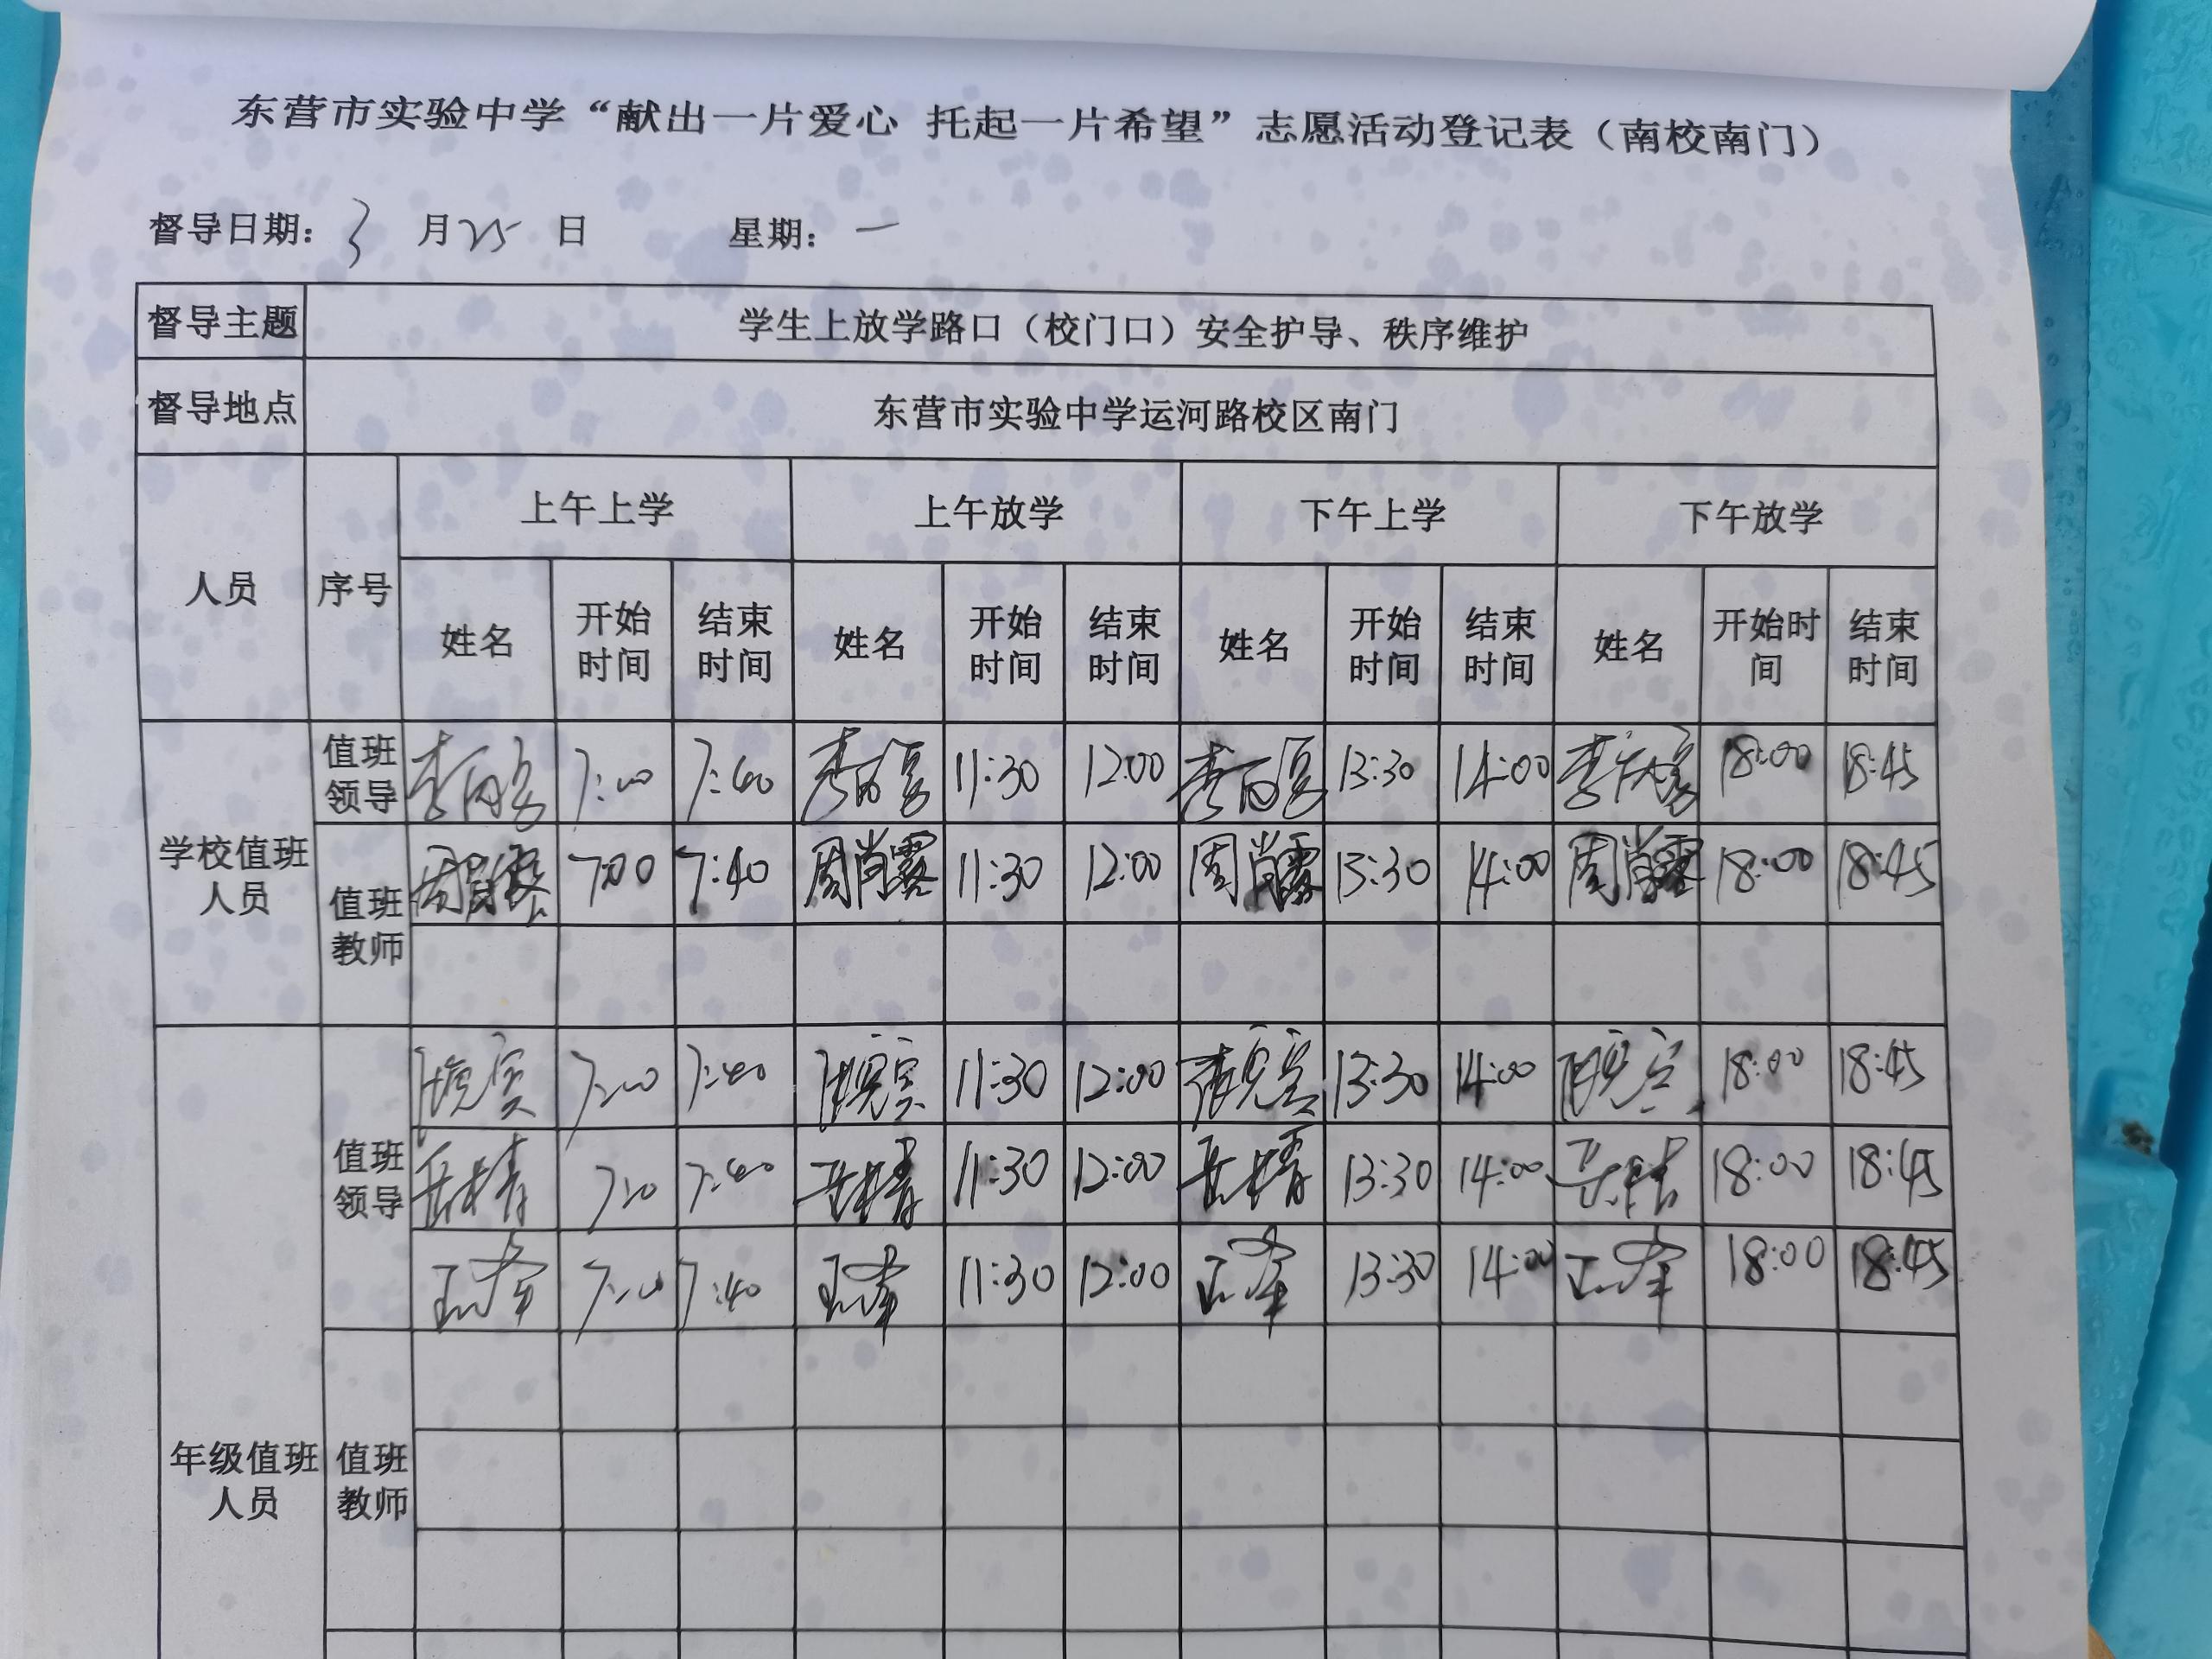 东营市实验中学“献出一片爱心 托起一片希望”志愿活动登记表（南校南门）
督导日期：3 月 25 日 星期：一
督导主题 学生上放学路口（校门口）安全护导、秩序维护
督导地点 东营市实验中学运河路校区南门
人员 序号 上午上学 上午放学 下午上学 下午放学
姓名 开始时间 结束时间 姓名 开始时间 结束时间 姓名 开始时间 结束时间 姓名 开始时间 结束时间
学校值班人员
值班领导 7:00 7:40 11:30 12:00 13:30 14:00 18:00 18:45
值班教师 周肖露 7:00 7:40 周肖露 11:30 12:00 周肖露 13:30 14:00 周肖露 18:00 18:45
年级值班人员
值班领导 7:00 7:40 11:30 12:00 13:30 14:00 18:00 18:45
7:00 7:40 11:30 12:00 13:30 14:00 18:00 18:45
7:00 7:40 11:30 12:00 13:30 14:00 18:00 18:45
值班教师